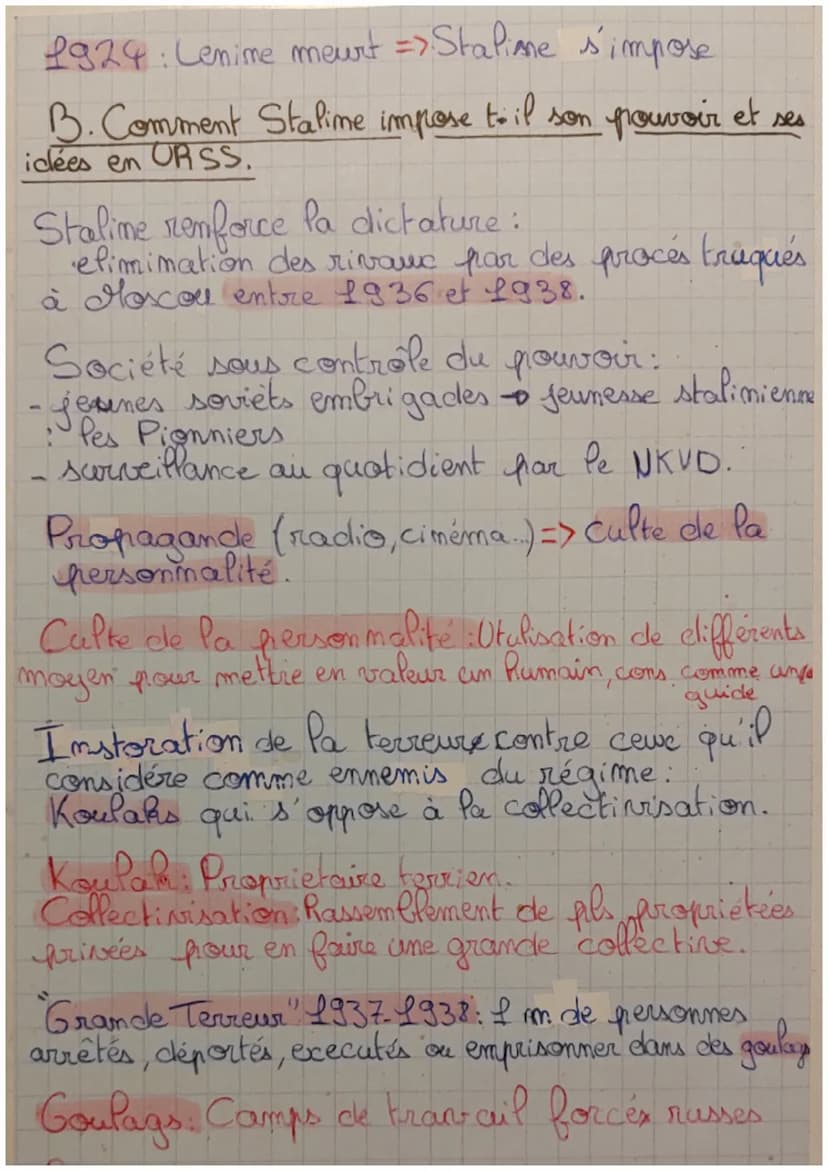 1924 : Lenine meurt => Staline s'impose
B. Comment Staline impose t-il son pouvoir et ses
idées en URSS.
Staline renforce la dictature :
elimination des rivaux par des procés truqués
à Moscou entre 1936 et 1938.
Société sous contrôle du pouvoir :
- jeunes soviéts embrigades → jeunesse stalinienne
: les Pionniers
- surveillance au quotidient par le NKVD.
Propagande (radio, cinéma...) => culte de la
personnalité.
Culte de la personnalité : Utulisation de différents
moyen pour mettre en valeur un humain, cons comme un
guide
Instoration de la terreure contre ceux qu'il
considére comme ennemis du régime :
Koulaks qui s'oppose à la collectivisation.
Koulak : Proprietaire terrien.
Collectivisation : Rassemblement de pls propriétées
privées pour en faire une grande collective.
"Grande Terreur" 1937-1938 : 1 m de personnes
arrêtés, déportés, executés ou emprisonner dans des goulags
Goulags : Camps de travail forcés russes